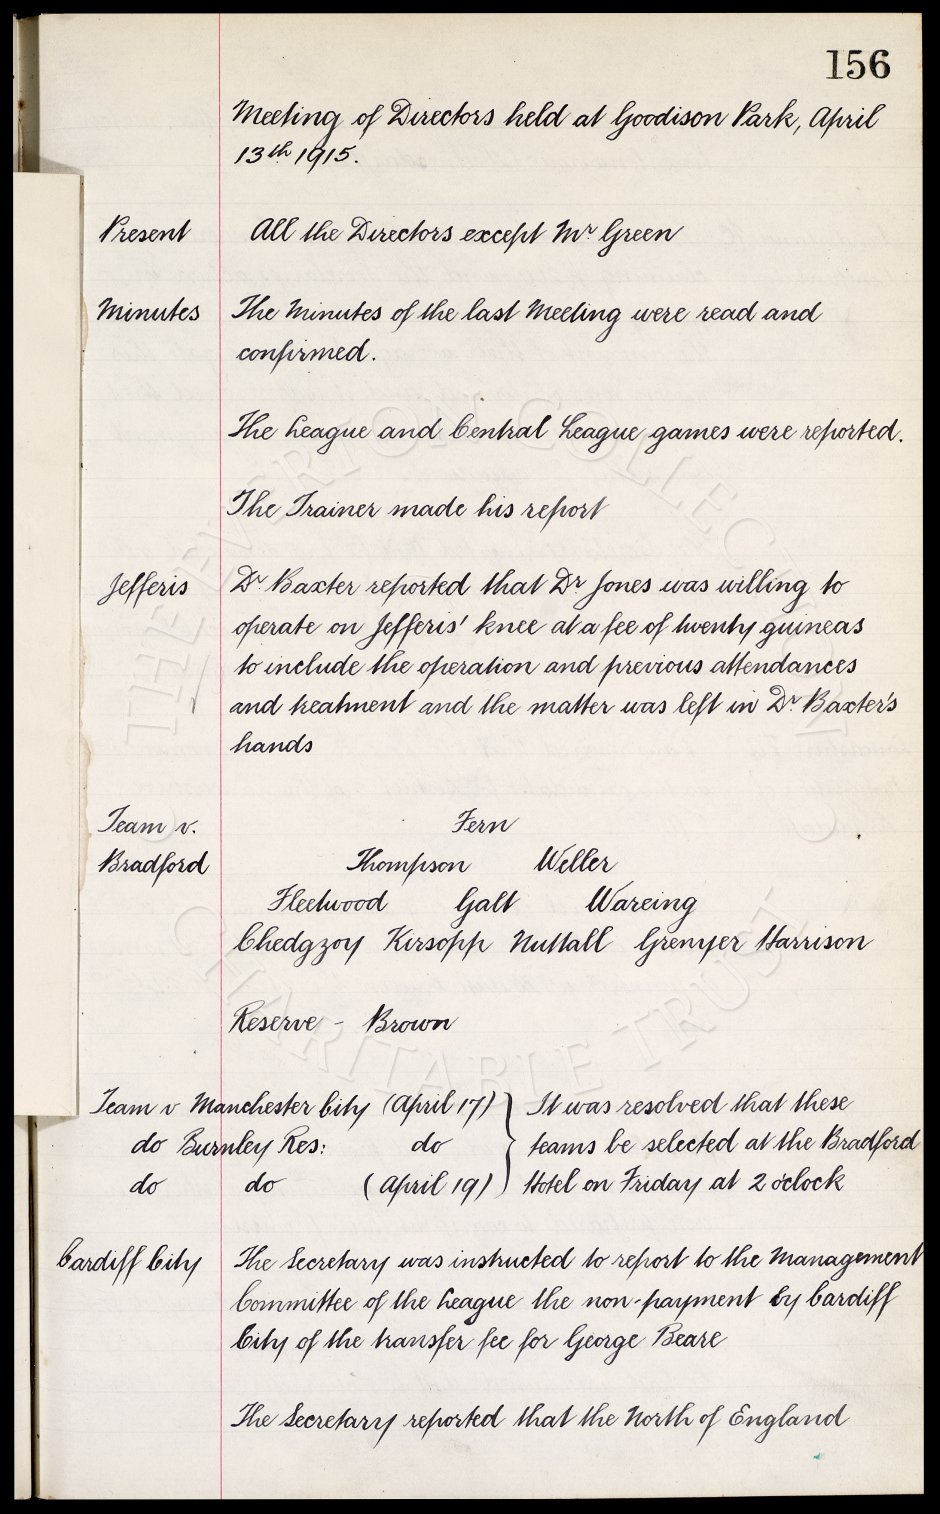 156
Meeting of Directors held at Goodison Park, April
13th 1915.
Present All the Directors except Mr Green
Minutes The Minutes of the last Meeting were read and
confirmed.
The League and Central League games were reported.
The Trainer made his report
Jefferis Dr. Baxter reported that Dr Jones was willing to
operate on Jefferis' knee at a fee of twenty guineas
to include the operation and previous attendances
and treatment and the matter was left in Dr. Baxter's
hands
Team v. Fern
Bradford Thompson Weller
Fleetwood Galt Wareing
Chedgzoy Kirsopp Nuttall Grenyer Harrison
Reserve - Brown
Team v Manchester City (April 17) } It was resolved that these
do Burnley Res: do teams be selected at the Bradford
do do (April 19) Hotel on Friday at 2 o'clock
Cardiff City The Secretary was instructed to report to the Management
Committee of the League the non-payment by Cardiff
City of the transfer fee for George Beare
The Secretary reported that the North of England
THE EVERTON COLLECTION
CHARITABLE TRUST